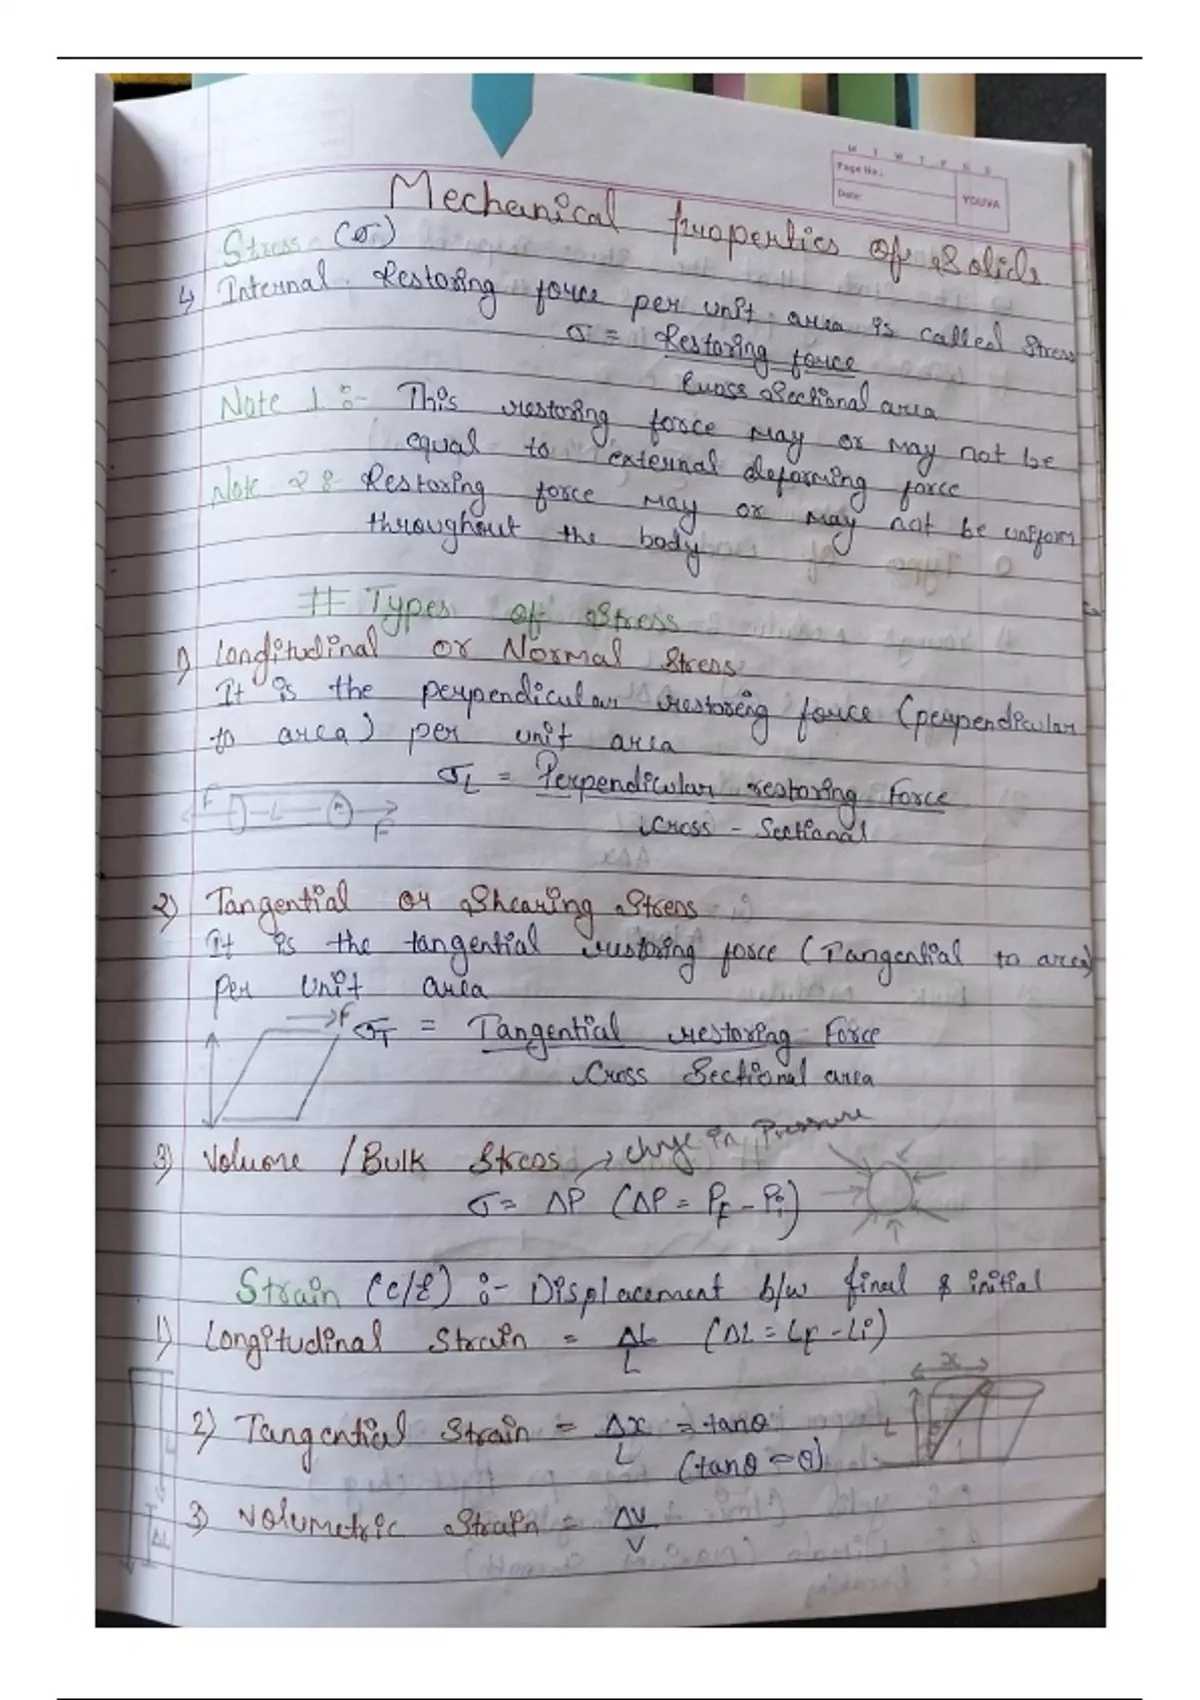 M T W T F S S
Page No.:
Date:
YOUVA
Mechanical properties of Solids
Stress (σ)
↳ Internal Restoring force per unit area is called Stress
σ = Restoring force
Cross Sectional area
Note 1 :- This restoring force may or may not be
equal to external deforming force
Note 2 :- Restoring force may or may not be uniform
throughout the body
# Types of Stress
1) Longitudinal or Normal Stress
It is the perpendicular restoring force (perpendicular
to area) per unit area
σL = Perpendicular restoring Force
Cross - Sectional
F L A F
2) Tangential or Shearing Stress
It is the tangential restoring force (Tangential to area)
per Unit area
F
σT = Tangential restoring Force
Cross Sectional area
3) Volume / Bulk Stress → change in Pressure
σ = ΔP (ΔP = PF - Pi)
Strain (c/ε) :- Displacement b/w final & initial
1) Longitudinal Strain = ΔL/L (ΔL = LF - Li)
x
L
2) Tangential Strain = Δx/L = tanθ
(tanθ ≈ θ)
L
θ
3) Volumetric Strain = ΔV/V
ΔL